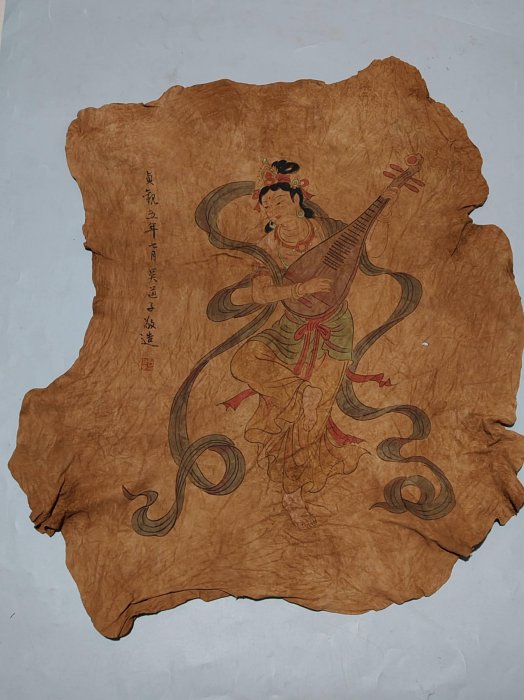 貞觀五年七月吳道子敬造